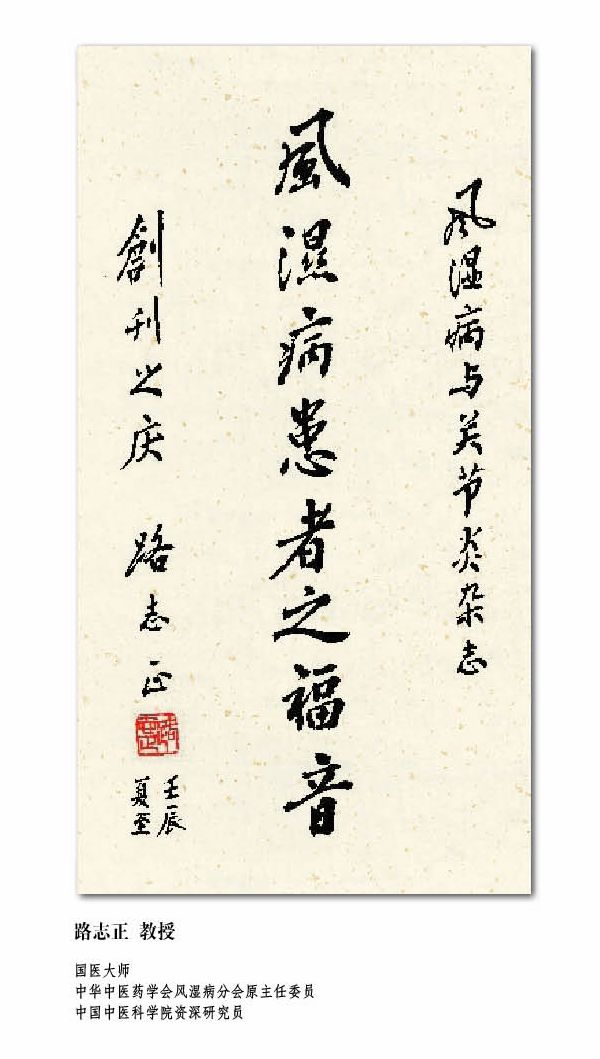 风湿病与关节炎杂志
風濕病患者之福音
創刊之庆
路志正
壬辰
夏至
路志正 教授
国医大师
中华中医药学会风湿病分会原主任委员
中国中医科学院资深研究员